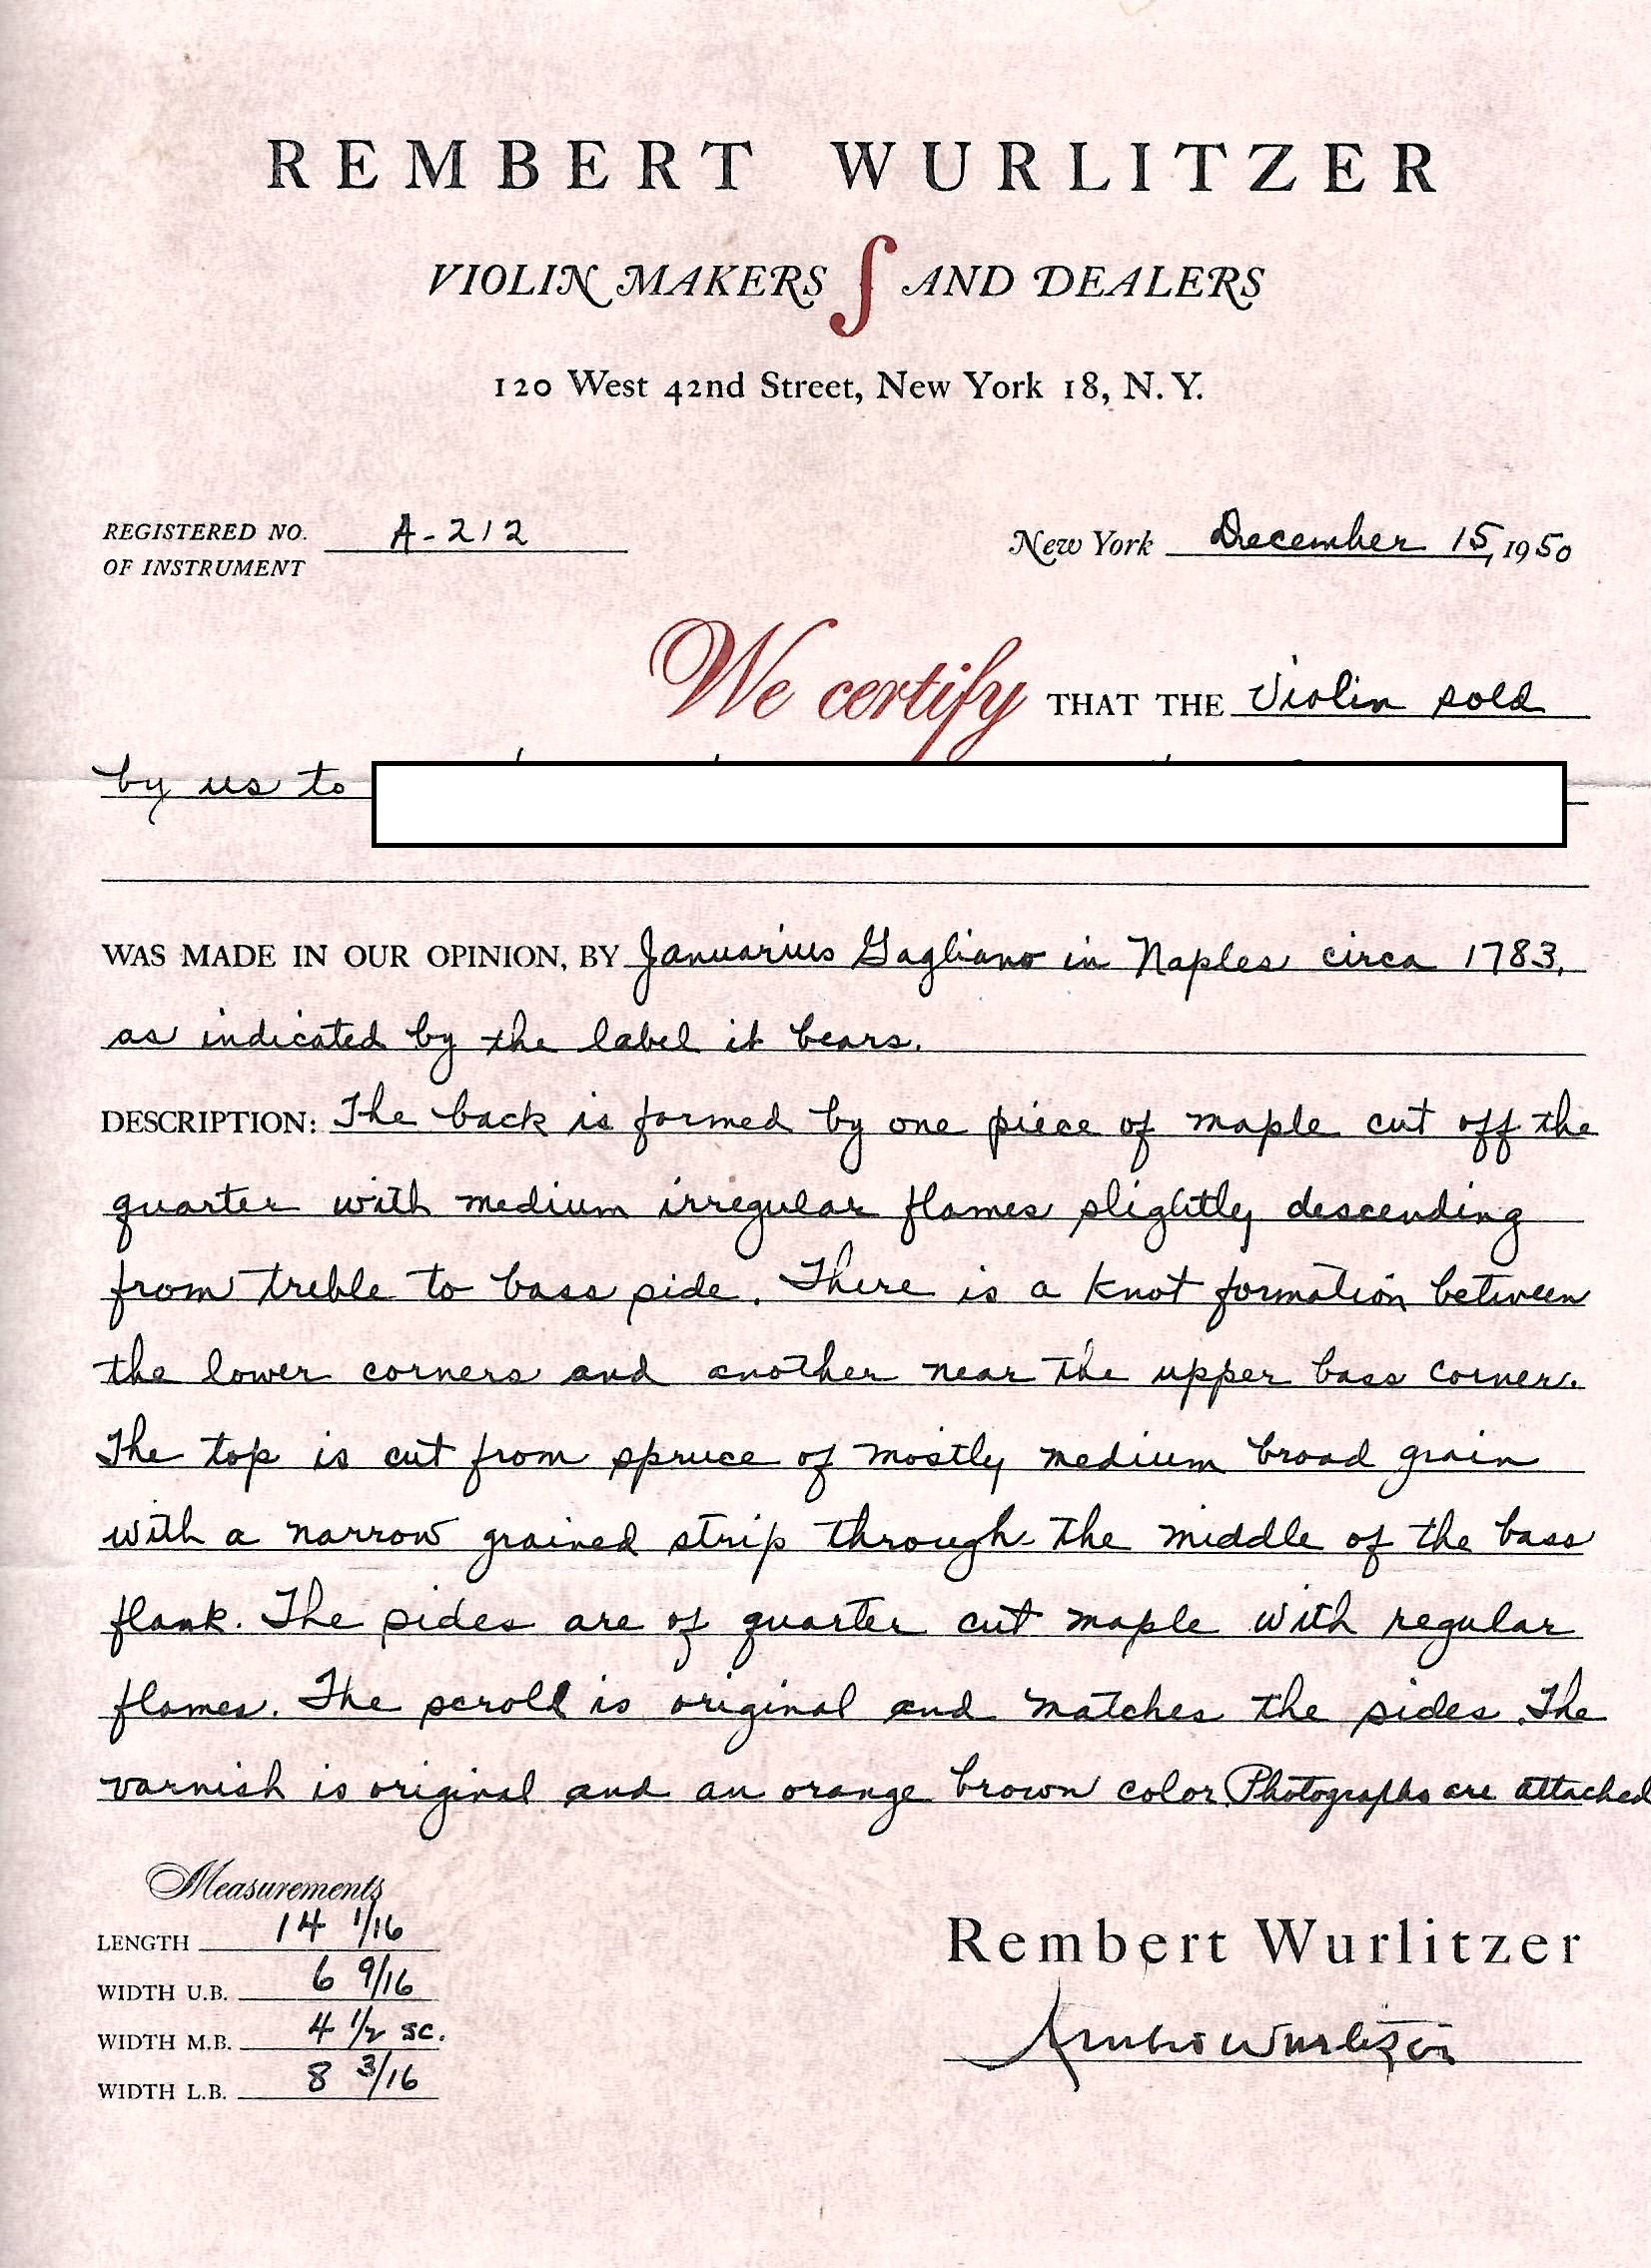 REMBERT WURLITZER
VIOLIN MAKERS AND DEALERS
120 West 42nd Street, New York 18, N.Y.
REGISTERED NO. A-212
OF INSTRUMENT
New York December 15, 1950
We certify THAT THE Violin sold
by us to
WAS MADE IN OUR OPINION, BY Januarius Gagliano in Naples circa 1783,
as indicated by the label it bears.
DESCRIPTION: The back is formed by one piece of maple cut off the
quarter with medium irregular flames slightly descending
from treble to bass side. There is a knot formation between
the lower corners and another near the upper bass corner.
The top is cut from spruce of mostly medium broad grain
with a narrow grained strip through the middle of the bass
flank. The sides are of quarter cut maple with regular
flames. The scroll is original and matches the sides. The
varnish is original and an orange brown color. Photographs are attached
Measurements
LENGTH 14 1/16
WIDTH U.B. 6 9/16
WIDTH M.B. 4 1/2 sc.
WIDTH L.B. 8 3/16
Rembert Wurlitzer
Rembert Wurlitzer